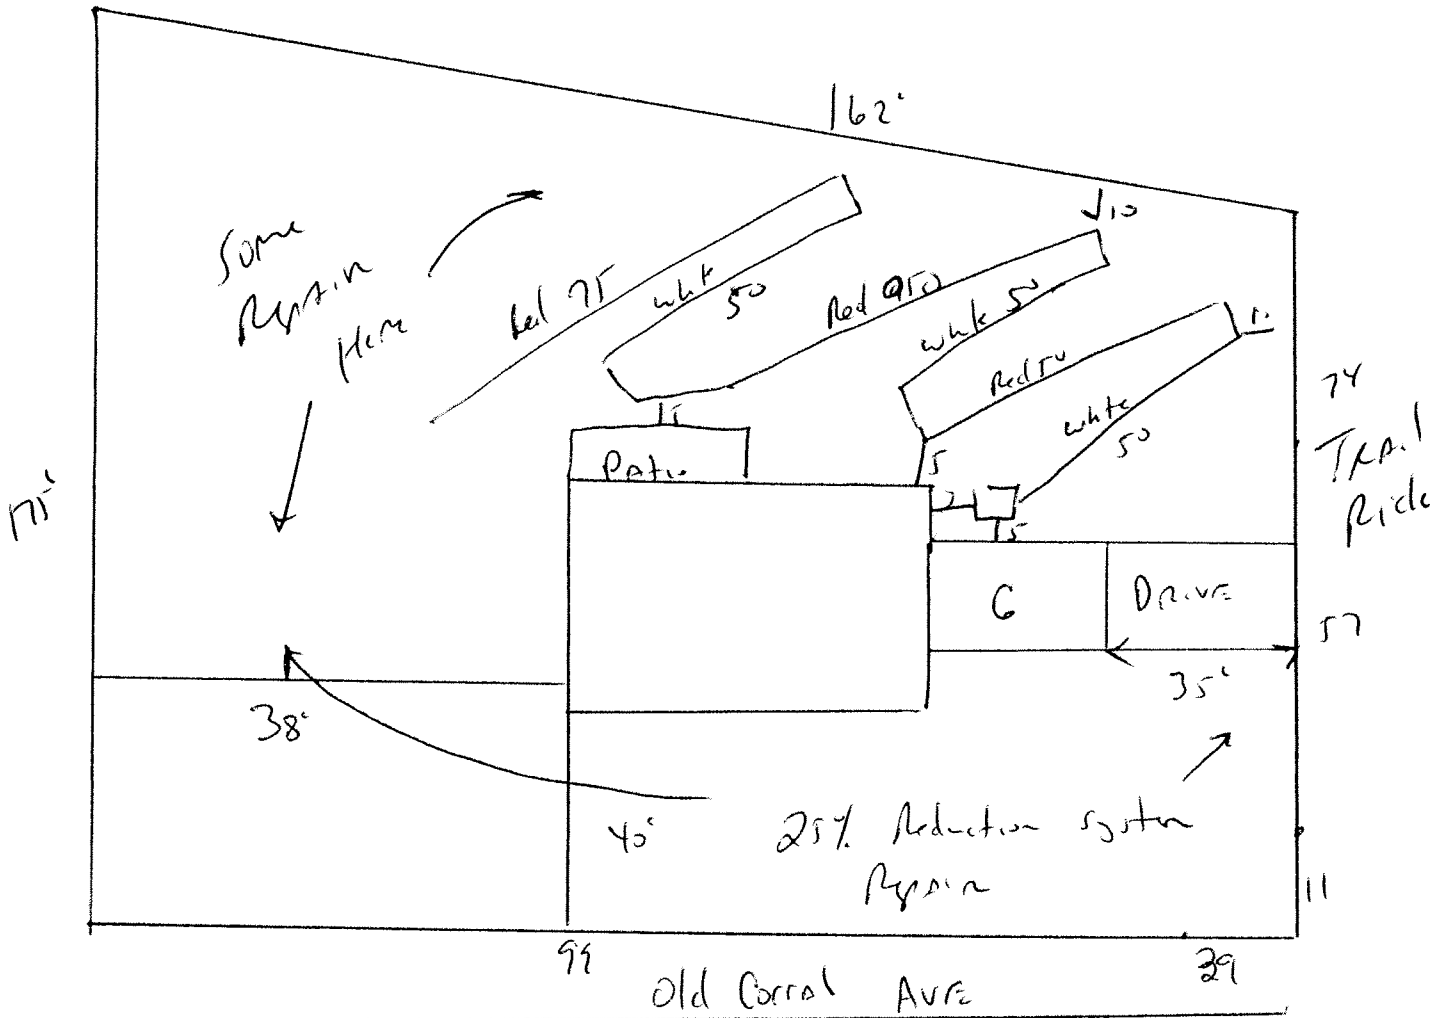 162'
10
Some
Repair
Here
Red 75
white
50
Red
white 50
Red 50
white
50
74
Trail
Ride
175'
Patio
5
5
G
DRIVE
57
35'
38'
40'
25% Reduction system
Repair
11
99
39
Old Corral AVE